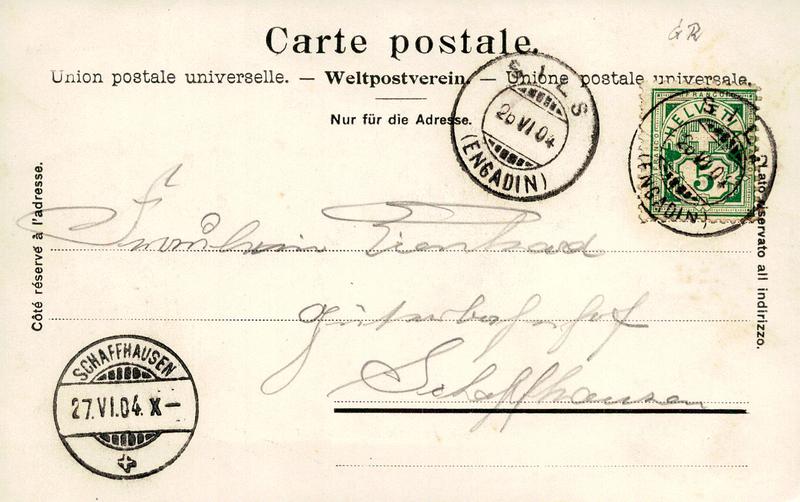 GR
Carte postale.
Union postale universelle. — Weltpostverein. — Unione postale universale.
Nur für die Adresse.
SILS
26 VI 04
(ENGADIN)
FRANCO
HELVETIA
5
SILS
26 VI 04
(ENGADIN)
Côté réservé à l'adresse.
Lato riservato all indirizzo.
Fräulein
Güterbahnhof
Schaffhausen
SCHAFFHAUSEN
27.VI.04. X—